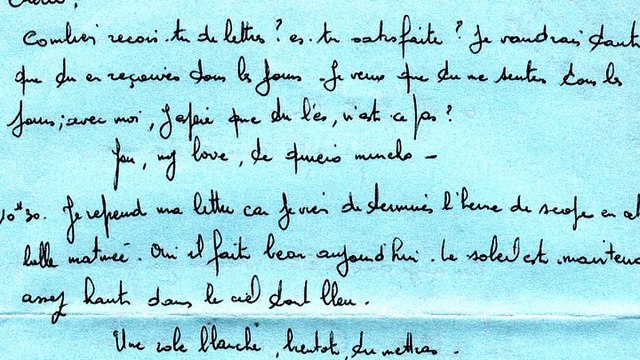 Combien recois-tu de lettres? es-tu satisfaite? Je voudrais
que du en reçoives dous les jours. Je veux que du me sentes dous les
jours; avec moi, J'espère que du l'és, n'est ce pas?
You, my love, de quiero muncho -
10H30. Je reprend ma lettre car Je viens de derminer l'heure de en
belle matineé. Oui il fait beau aujourd'hui. Le soleil est maintena
assez haut dans le ciel dout bleu.
Une robe blanche, bientot, du mettras.